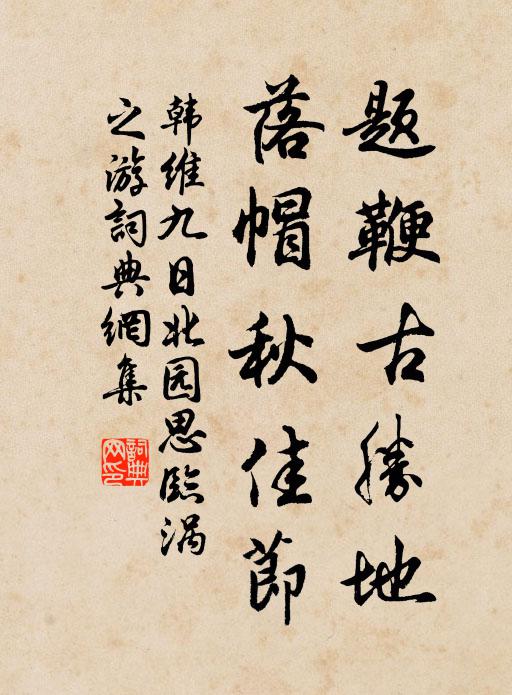 题鞭古勝地
落帽秋佳節
韩维九日北园思臨涡
之游詞典網集
詞典网印